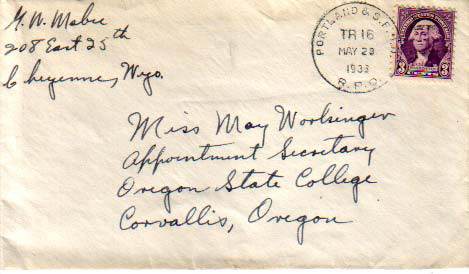 G. W. Mabee
208 East 25th
Cheyenne, Wyo.
PORTLAND & S.F.
TR 16
MAY 20
1933
R.P.O.
3 3
Miss May Workinger
Appointment Secretary
Oregon State College
Corvallis, Oregon